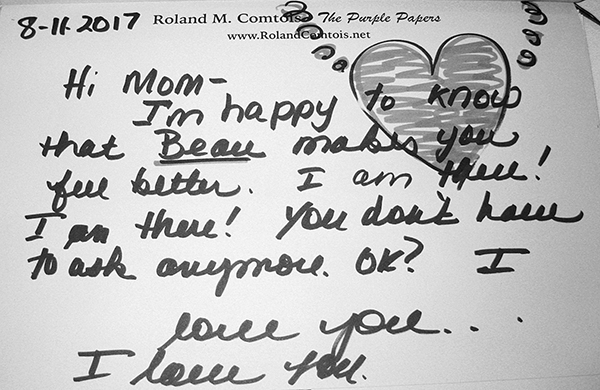 8-11-2017 Roland M. Comtois The Purple Papers
www.RolandComtois.net
Hi Mom-
I'm happy to know
that Beau makes you
feel better. I am there!
I am there! You don't have
to ask anymore. OK? I
love you...
I love you.